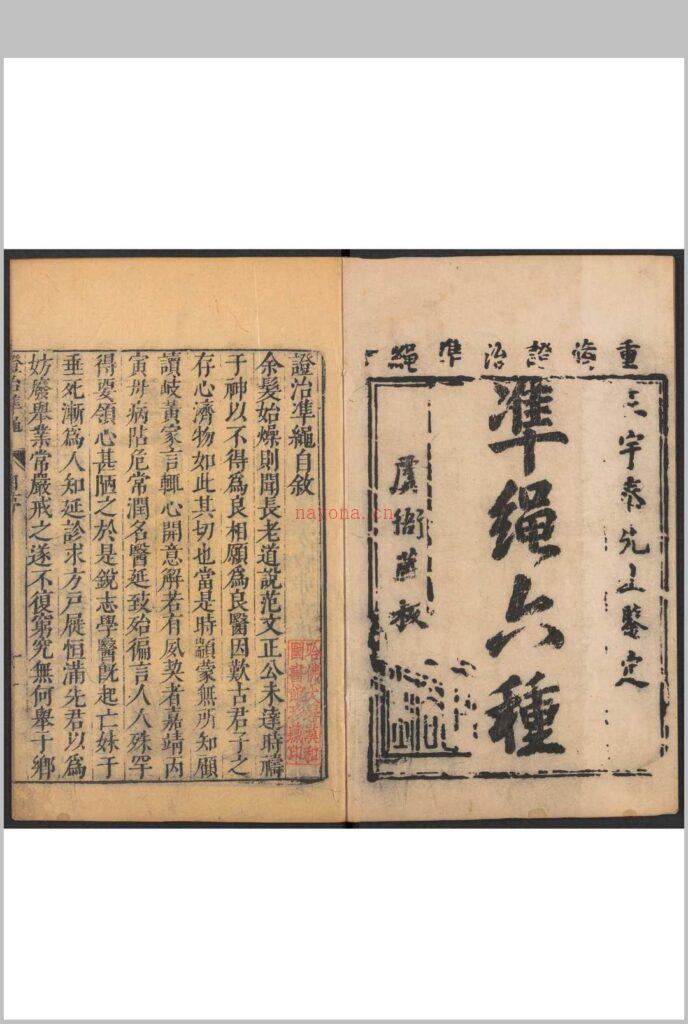 重脩證治準繩
王宇泰先生鑒定
準繩六種
虞衙藏板
證治準繩自敘
余髮始燥則聞長老道說范文正公未達時禱
于神以不得為良相願為良醫因歎古君子之
存心濟物如此其切也當是時顓蒙無所知顧
讀岐黃家言輒心開意解若有夙契者嘉靖丙
寅母病阽危常潤名醫延致殆徧言人人殊罕
得要領心甚陋之於是銳志學醫既起亡妹于
垂死漸為人知延診求方戶屨恒滿先君以為
妨廢舉業常嚴戒之遂不復窮究無何舉于鄉
證治準繩
哈佛大學漢和
圖書館珍藏印
nayona.cn